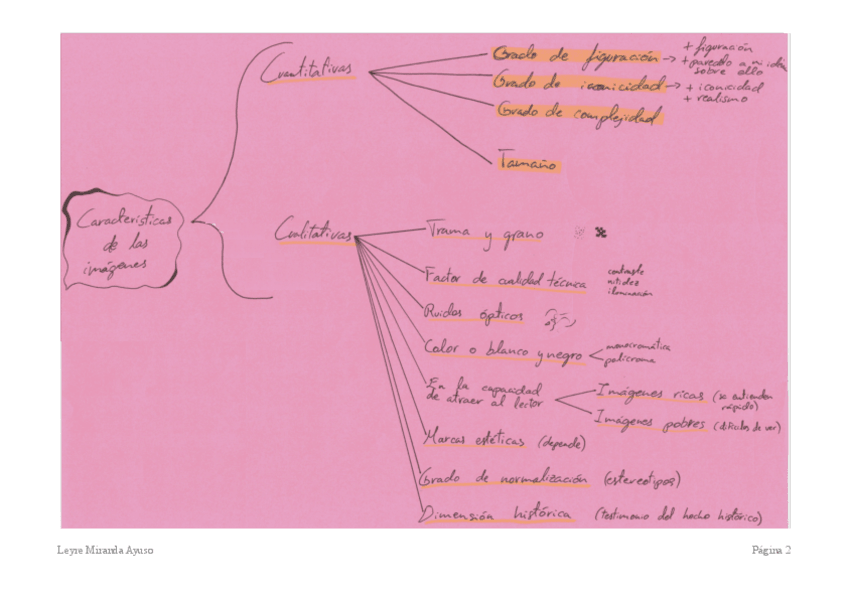 Cuantitativas
Grado de figuración → + figuración
+ parecido a mi idea
sobre ello
Grado de iconicidad → + iconicidad
+ realismo
Grado de complejidad
Tamaño
Características
de las
imágenes
Cualitativas
Trama y grano
Factor de cualidad técnica
contraste
nitidez
iluminación
Ruidos ópticos
Color o blanco y negro
monocromática
policroma
En la capacidad
de atraer al lector
Imágenes ricas (se entienden
rápido)
Imágenes pobres (difíciles de ver)
Marcas estéticas (depende)
Grado de normalización (estereotipos)
Dimensión histórica (testimonio del hecho histórico)
Leyre Miranda Ayuso
Página 2